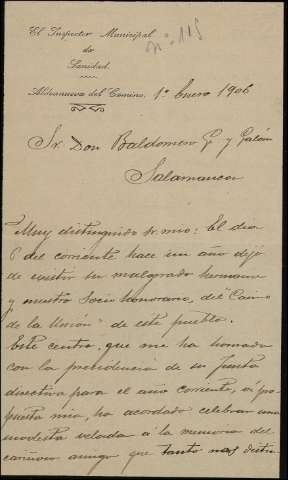 El Inspector Municipal
de
Sanidad.
nº 115
Aldeanueva del Camino, 1º Enero 1906
Sr. Don Baldomero G. y Galán
Salamanca
Muy distinguido Sr. mio: El dia
6 del corriente hace un año dejó
de existir su malogrado hermano
y nuestro Socio honorario, del "Casino
de la Unión" de este pueblo.
Este centro, que me ha honrado
con la presidencia de su Junta
directiva para el año corriente, á pro-
puesta mia, ha acordado celebrar una
modesta velada á la memoria del
cariñoso amigo que tanto nos distin